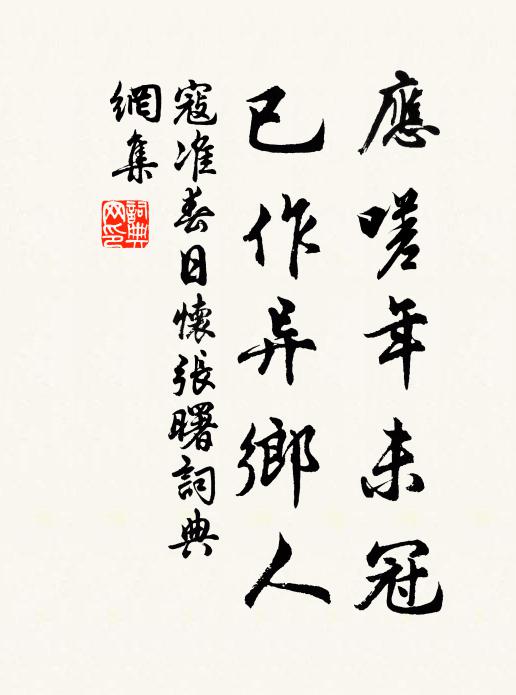 應嗟年未冠
已作异鄉人
寇准春日懷張曙詞典
網集
詞典
网印